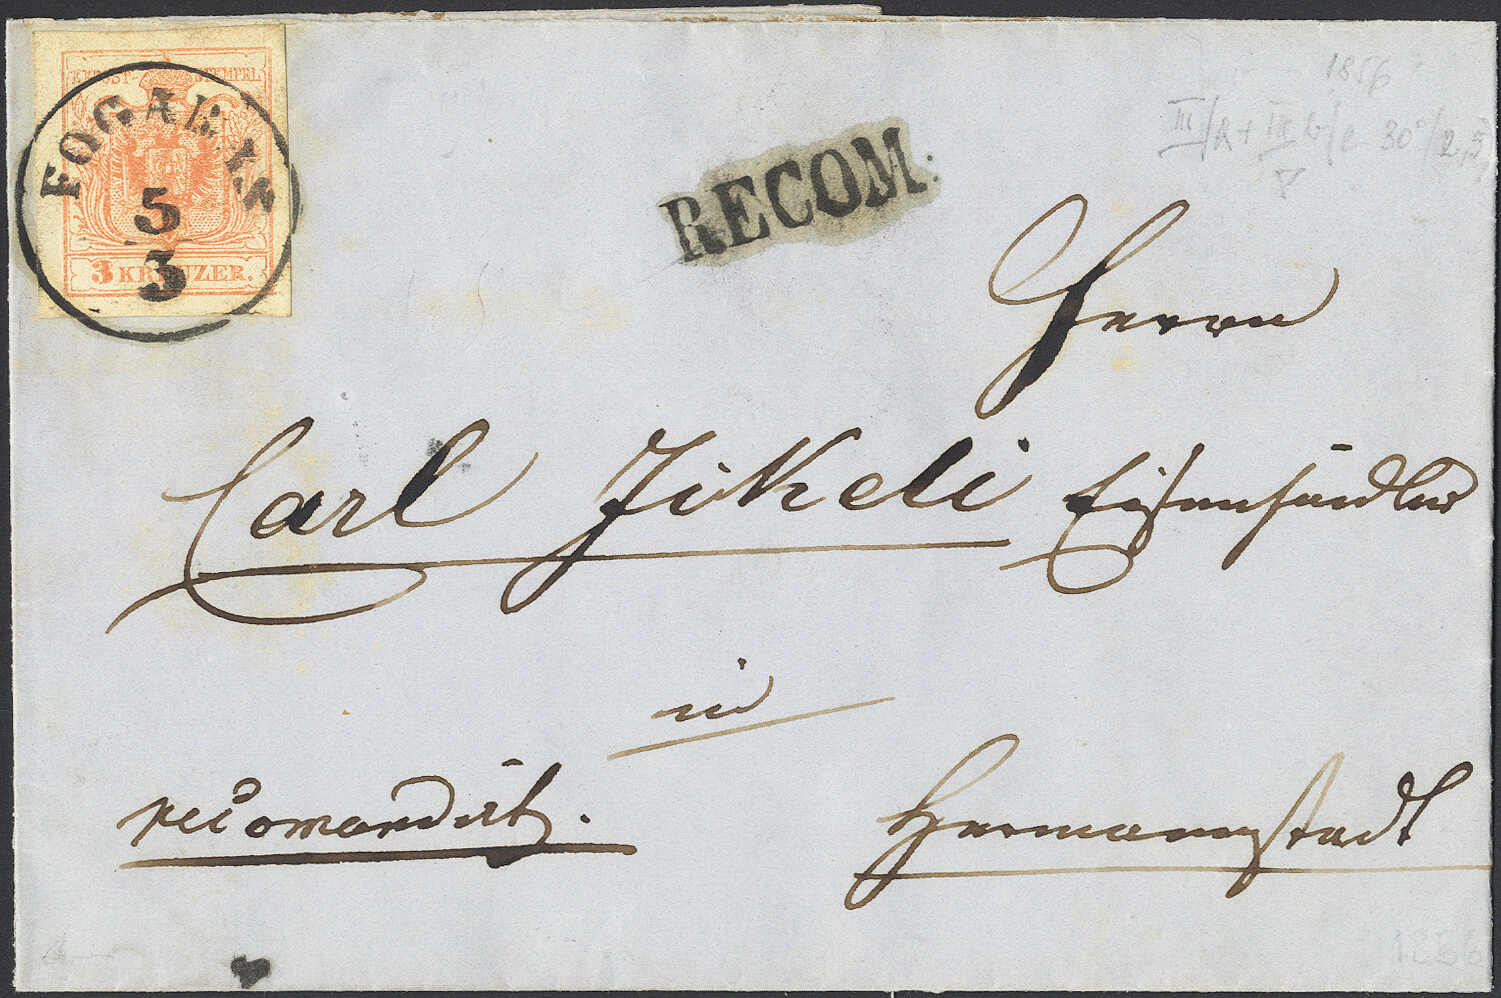 KK POST-STEMPEL
FOGARAS
5
3
3 KREUZER.
RECOM.
1856
III/a + III b/c 30°/2,5
Herrn
Carl Jikeli Eisenhändler
in
recomandirt.
Hermannstadt
1856